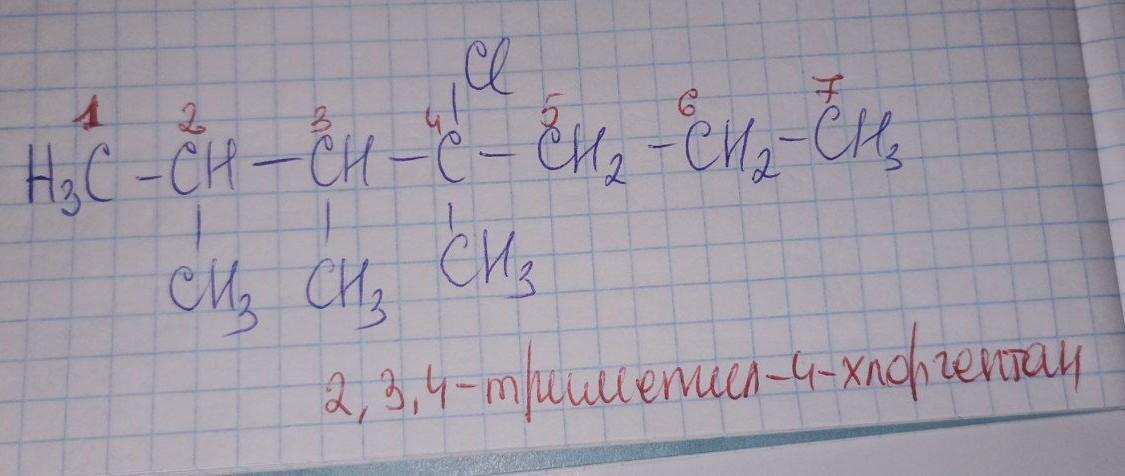 Cl
1 2 3 4 5 6 7
H₃C - CH - CH - C - CH₂ - CH₂ - CH₃
CH₃ CH₃ CH₃
2,3,4-триметил-4-хлоргептан